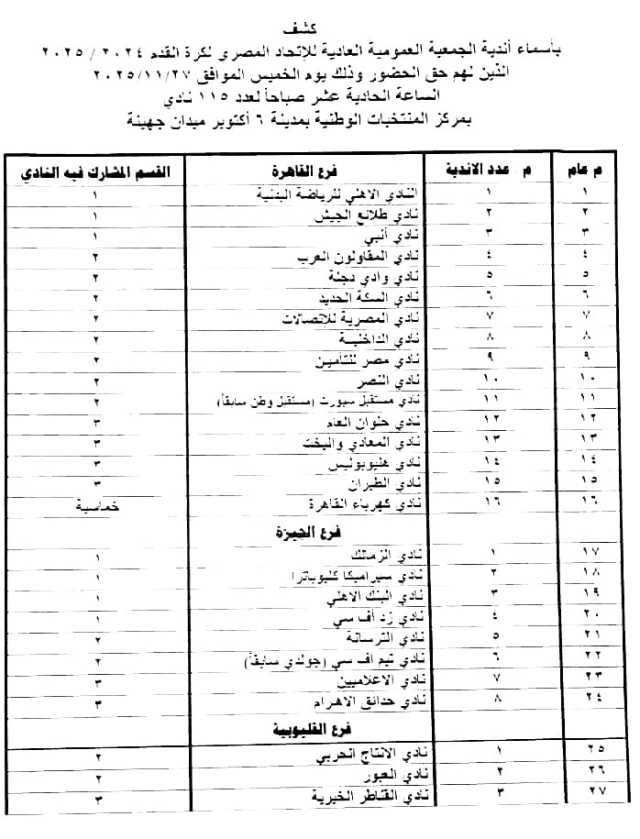 كشف
بأسماء أندية الجمعية العمومية العادية للإتحاد المصري لكرة القدم ٢٠٢٤ / ٢٠٢٥
الذين لهم حق الحضور وذلك يوم الخميس الموافق ٢٠٢٥/١١/٢٧
الساعة الحادية عشر صباحاً لعدد ١١٥ نادي
بمركز المنتخبات الوطنية بمدينة ٦ أكتوبر ميدان جهينة
م عام م عدد الاندية فرع القاهرة القسم المشارك فيه النادي
١ ١ النادي الاهلي للرياضة البدنية ١
٢ ٢ نادي طلائع الجيش ١
٣ ٣ نادي أنبي ١
٤ ٤ نادي المقاولون العرب ٢
٥ ٥ نادي وادي دجلة ٢
٦ ٦ نادي السكة الحديد ٢
٧ ٧ نادي المصرية للإتصالات ٢
٨ ٨ نادي الداخلية ٢
٩ ٩ نادي مصر للتأمين ٢
١٠ ١٠ نادي النصر ٢
١١ ١١ نادي مستقبل سبورت (مستقبل وطن سابقاً) ٢
١٢ ١٢ نادي حلوان العام ٣
١٣ ١٣ نادي المعادي واليخت ٣
١٤ ١٤ نادي هليوبوليس ٣
١٥ ١٥ نادي الطيران ٣
١٦ ١٦ نادي كهرباء القاهرة خماسية
فرع الجيزة
١٧ ١ نادي الزمالك ١
١٨ ٢ نادي سيراميكا كليوباترا ١
١٩ ٣ نادي البنك الاهلي ١
٢٠ ٤ نادي زد أف سي ١
٢١ ٥ نادي الترسانة ٢
٢٢ ٦ نادي تيم اف سي (جولدي سابقاً) ٢
٢٣ ٧ نادي الاعلاميين ٣
٢٤ ٨ نادي حدائق الاهرام ٣
فرع القليوبية
٢٥ ١ نادي الانتاج الحربي ٢
٢٦ ٢ نادي العبور ٢
٢٧ ٣ نادي القناطر الخيرية ٣